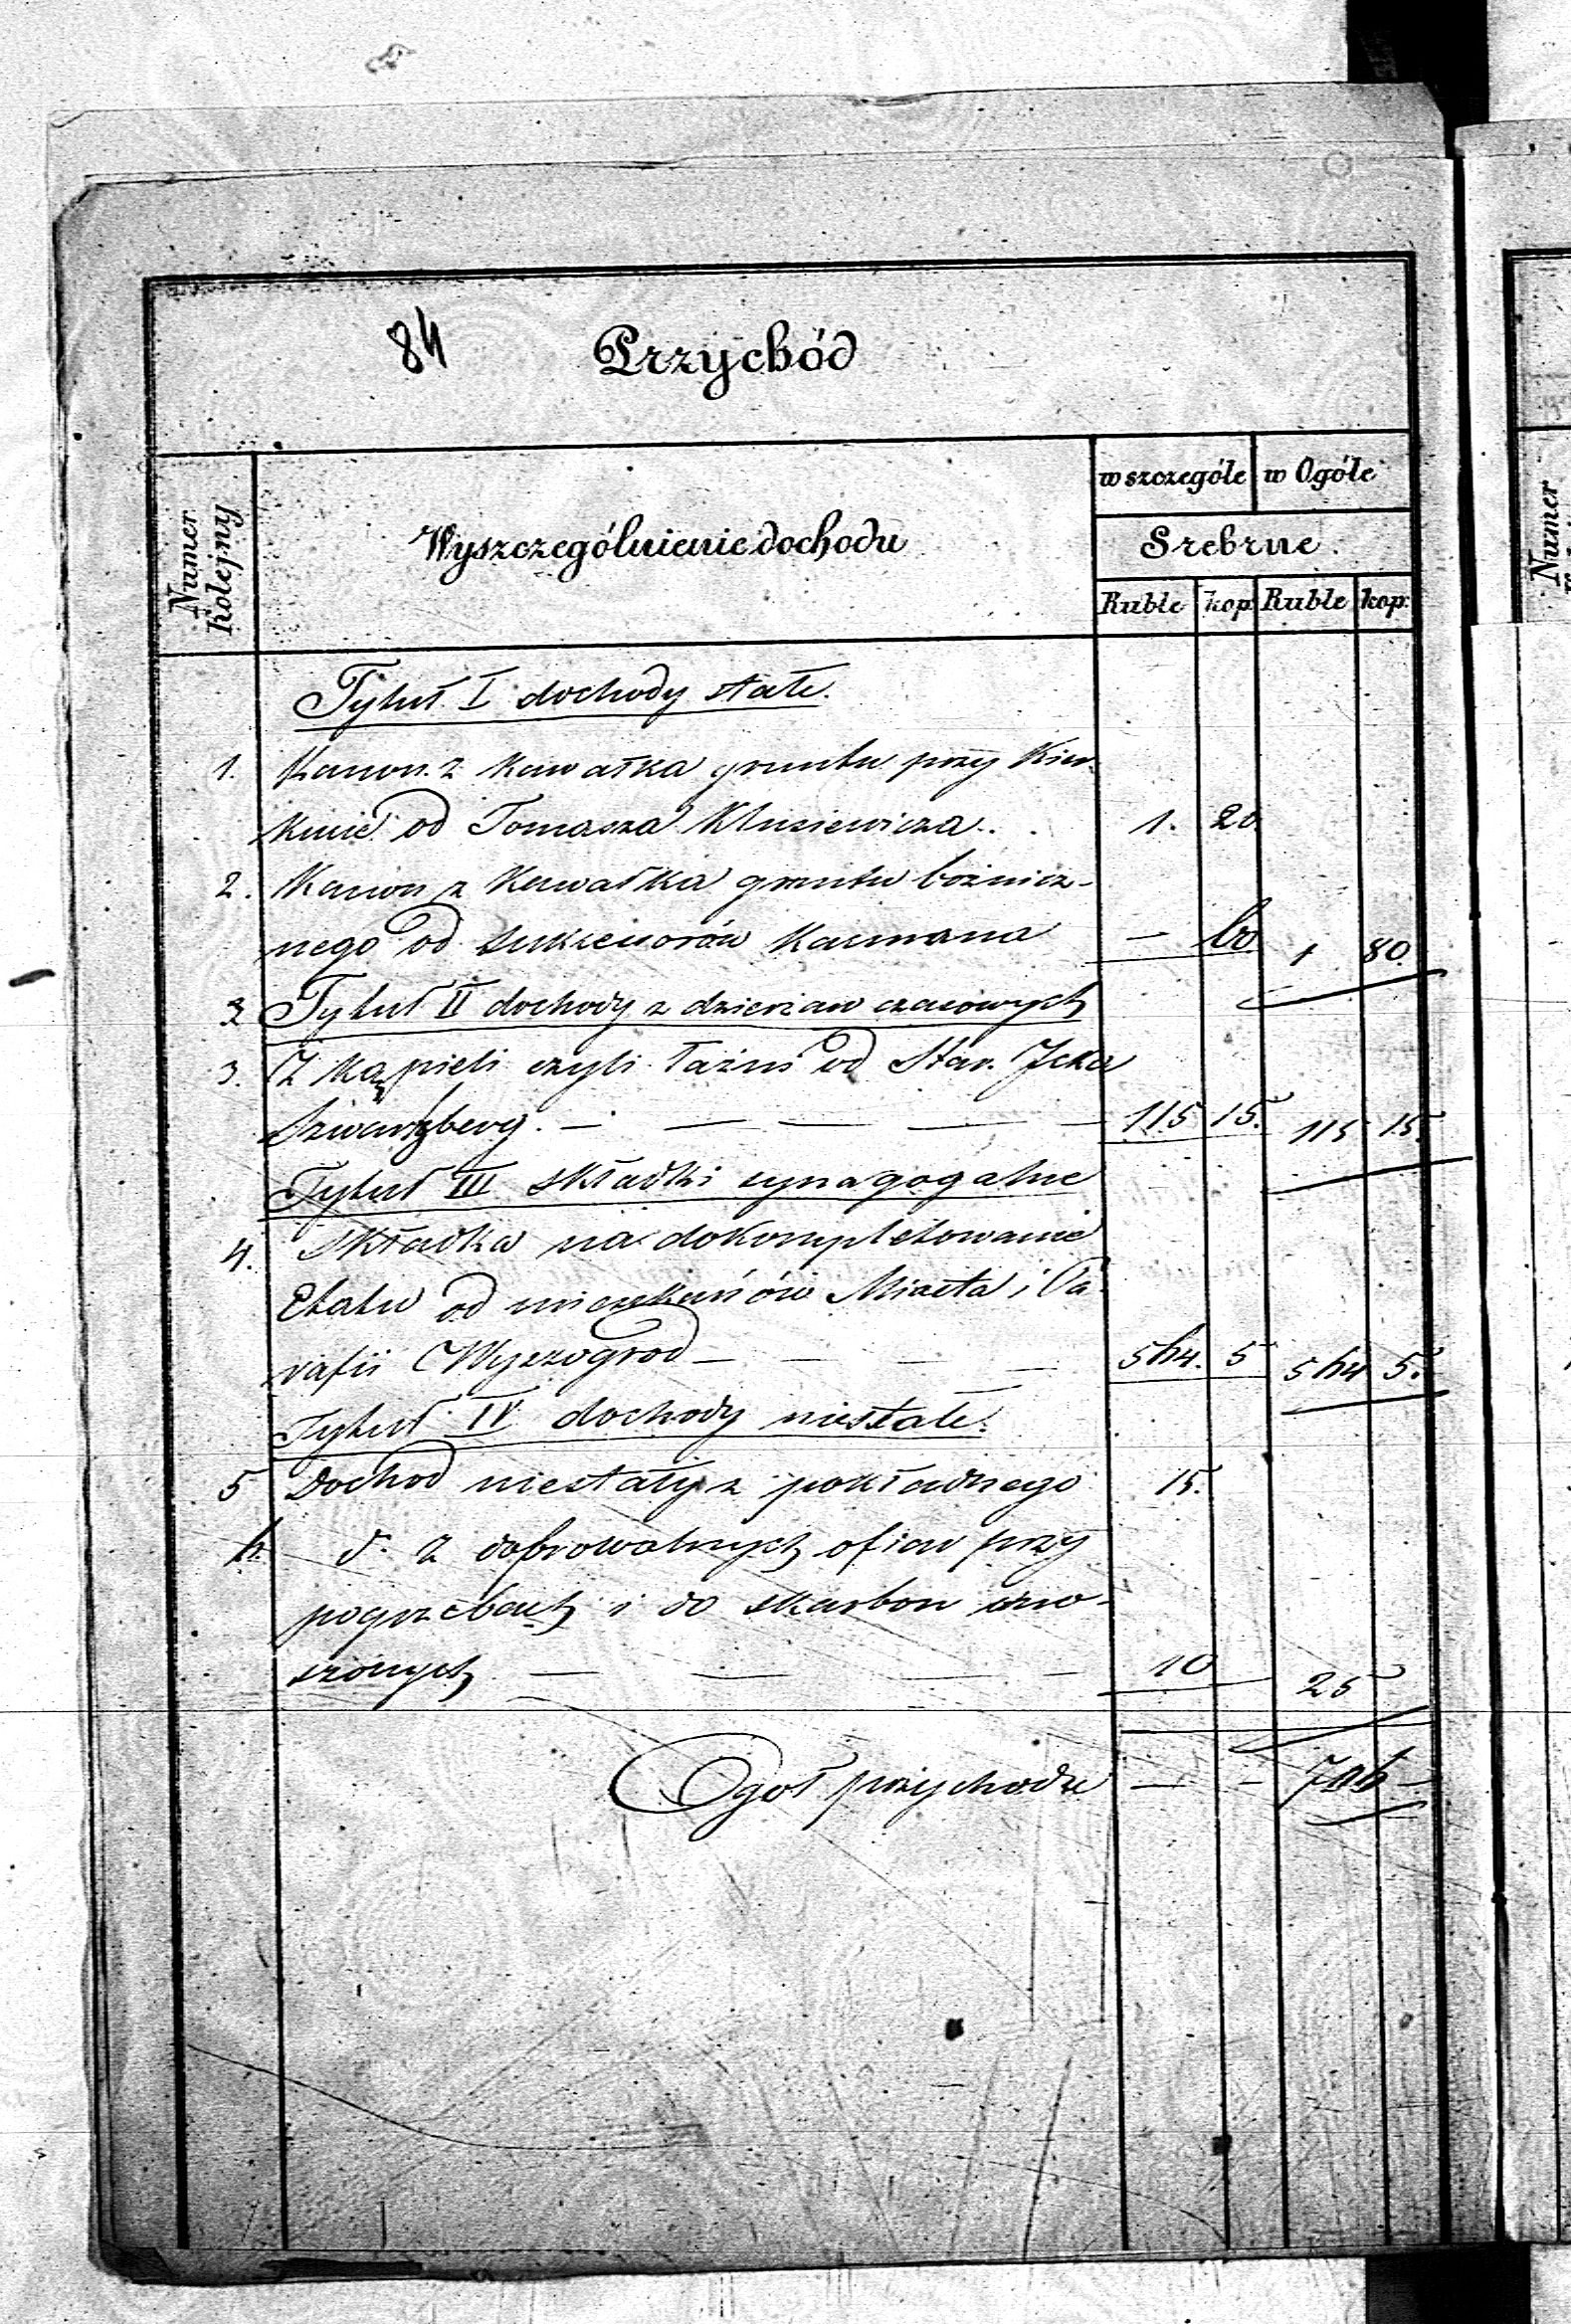 84 Przychód
Numer Kolejny
Wyszczególnienie dochodu
w szczególe w Ogóle
Srebrne.
Ruble kop Ruble kop:
Tytuł I dochody stałe.
1. Kanon z kawałka gruntu przy Kier-
kucie od Tomasza Klusiewicza.. 1. 20.
2. Kanon z kawałka gruntu bóżnicz-
nego od sukcesorów Karmana — 60. 1 80.
Tytuł II dochody z dzierżaw czasowych
3. Z kąpieli czyli łaźni od Star. Icka
Szwarzberg. — — — — — 115 15. 115 15.
Tytuł III składki synagogalne
4. Składka na dokompletowanie
Etatu od mieszkańców Miasta i Pa-
rafii Wyszogrod — — — — 564. 5 564 5.
Tytuł IV dochody niestałe.
5 Dochod niestały z pokładnego 15.
6. d. z dobrowolnych ofiar przy
pogrzebach i do skarbon wno-
szonych — — — 10 25
Ogoł przychodu — — 706 —
Numer